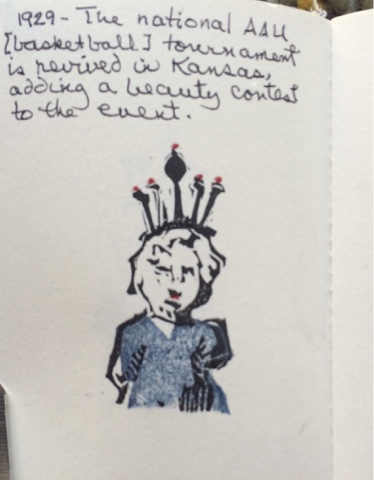 1929 - The national AAU
[basketball] tournament
is revived in Kansas,
adding a beauty contest
to the event.